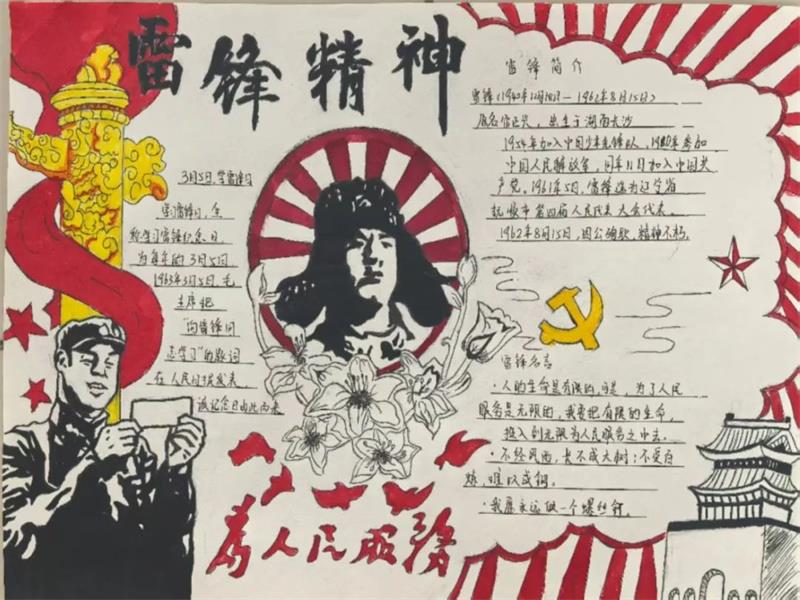 雷锋精神
3月5日,学雷锋日
学习雷锋日,全
称学习雷锋纪念日,
为每年的3月5日
1963年3月5日,毛
主席把
"向雷锋同
志学习"的题词
在人民日报发表
该纪念日由此而来
为人民服务
雷锋简介
雷锋(1940年12月18日—1962年8月15日)
原名雷正兴,出生于湖南长沙
1954年加入中国少年先锋队,1960年参加
中国人民解放军,同年11月加入中国共
产党。1961年5月,雷锋选为辽宁省
抚顺市第四届人民代表大会代表。
1962年8月15日,因公殉职,精神不朽。
雷锋名言
·人的生命是有限的,可是,为了人民
服务是无限的,我要把有限的生命,
投入到无限为人民服务之中去。
·不经风雨,长不成大树;不受百
炼,难以成钢。
·我愿永远做一个螺丝钉。